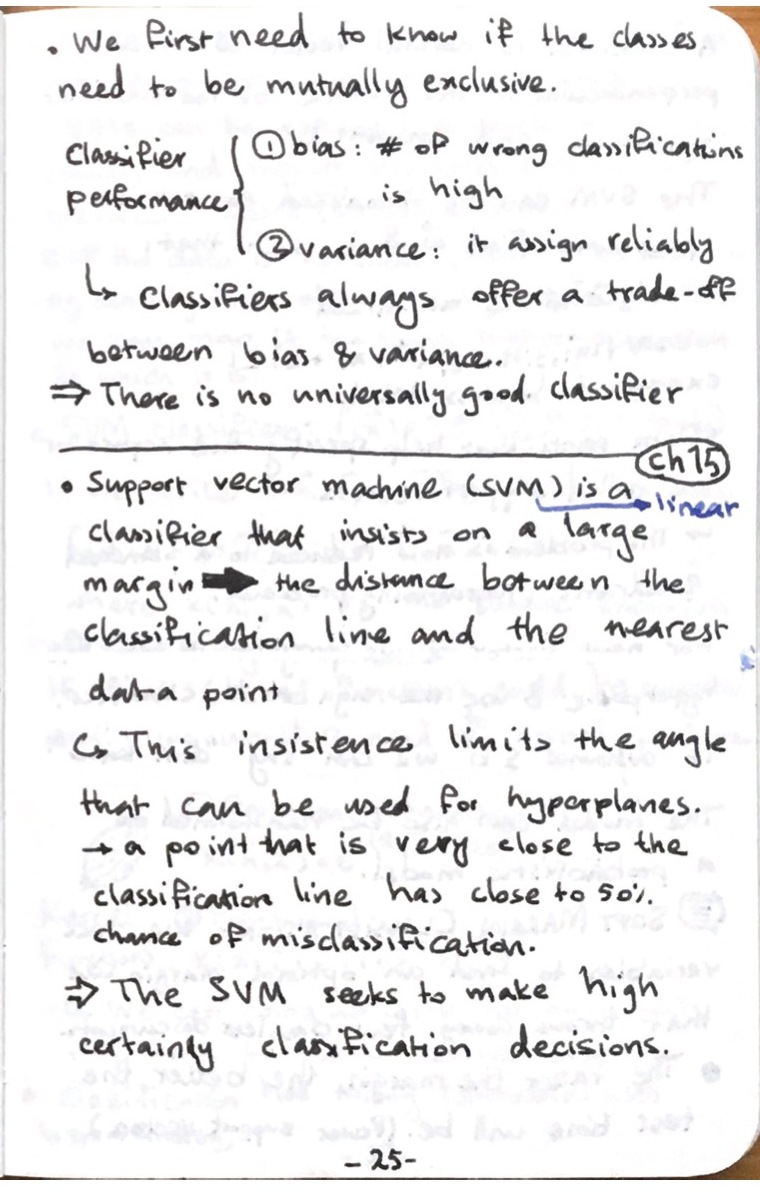 • We first need to know if the classes
need to be mutually exclusive.
Classifier performance { ① bias: # of wrong classifications
is high
② variance: it assign reliably
↳ Classifiers always offer a trade-off
between bias & variance.
⇒ There is no universally good classifier
Ch 15
• Support vector machine (SVM) is a → linear
classifier that insists on a large
margin ➡ the distance between the
classification line and the nearest
data point
↳ This insistence limits the angle
that can be used for hyperplanes.
→ a point that is very close to the
classification line has close to 50%
chance of misclassification.
⇒ The SVM seeks to make high
certainly classification decisions.
- 25 -